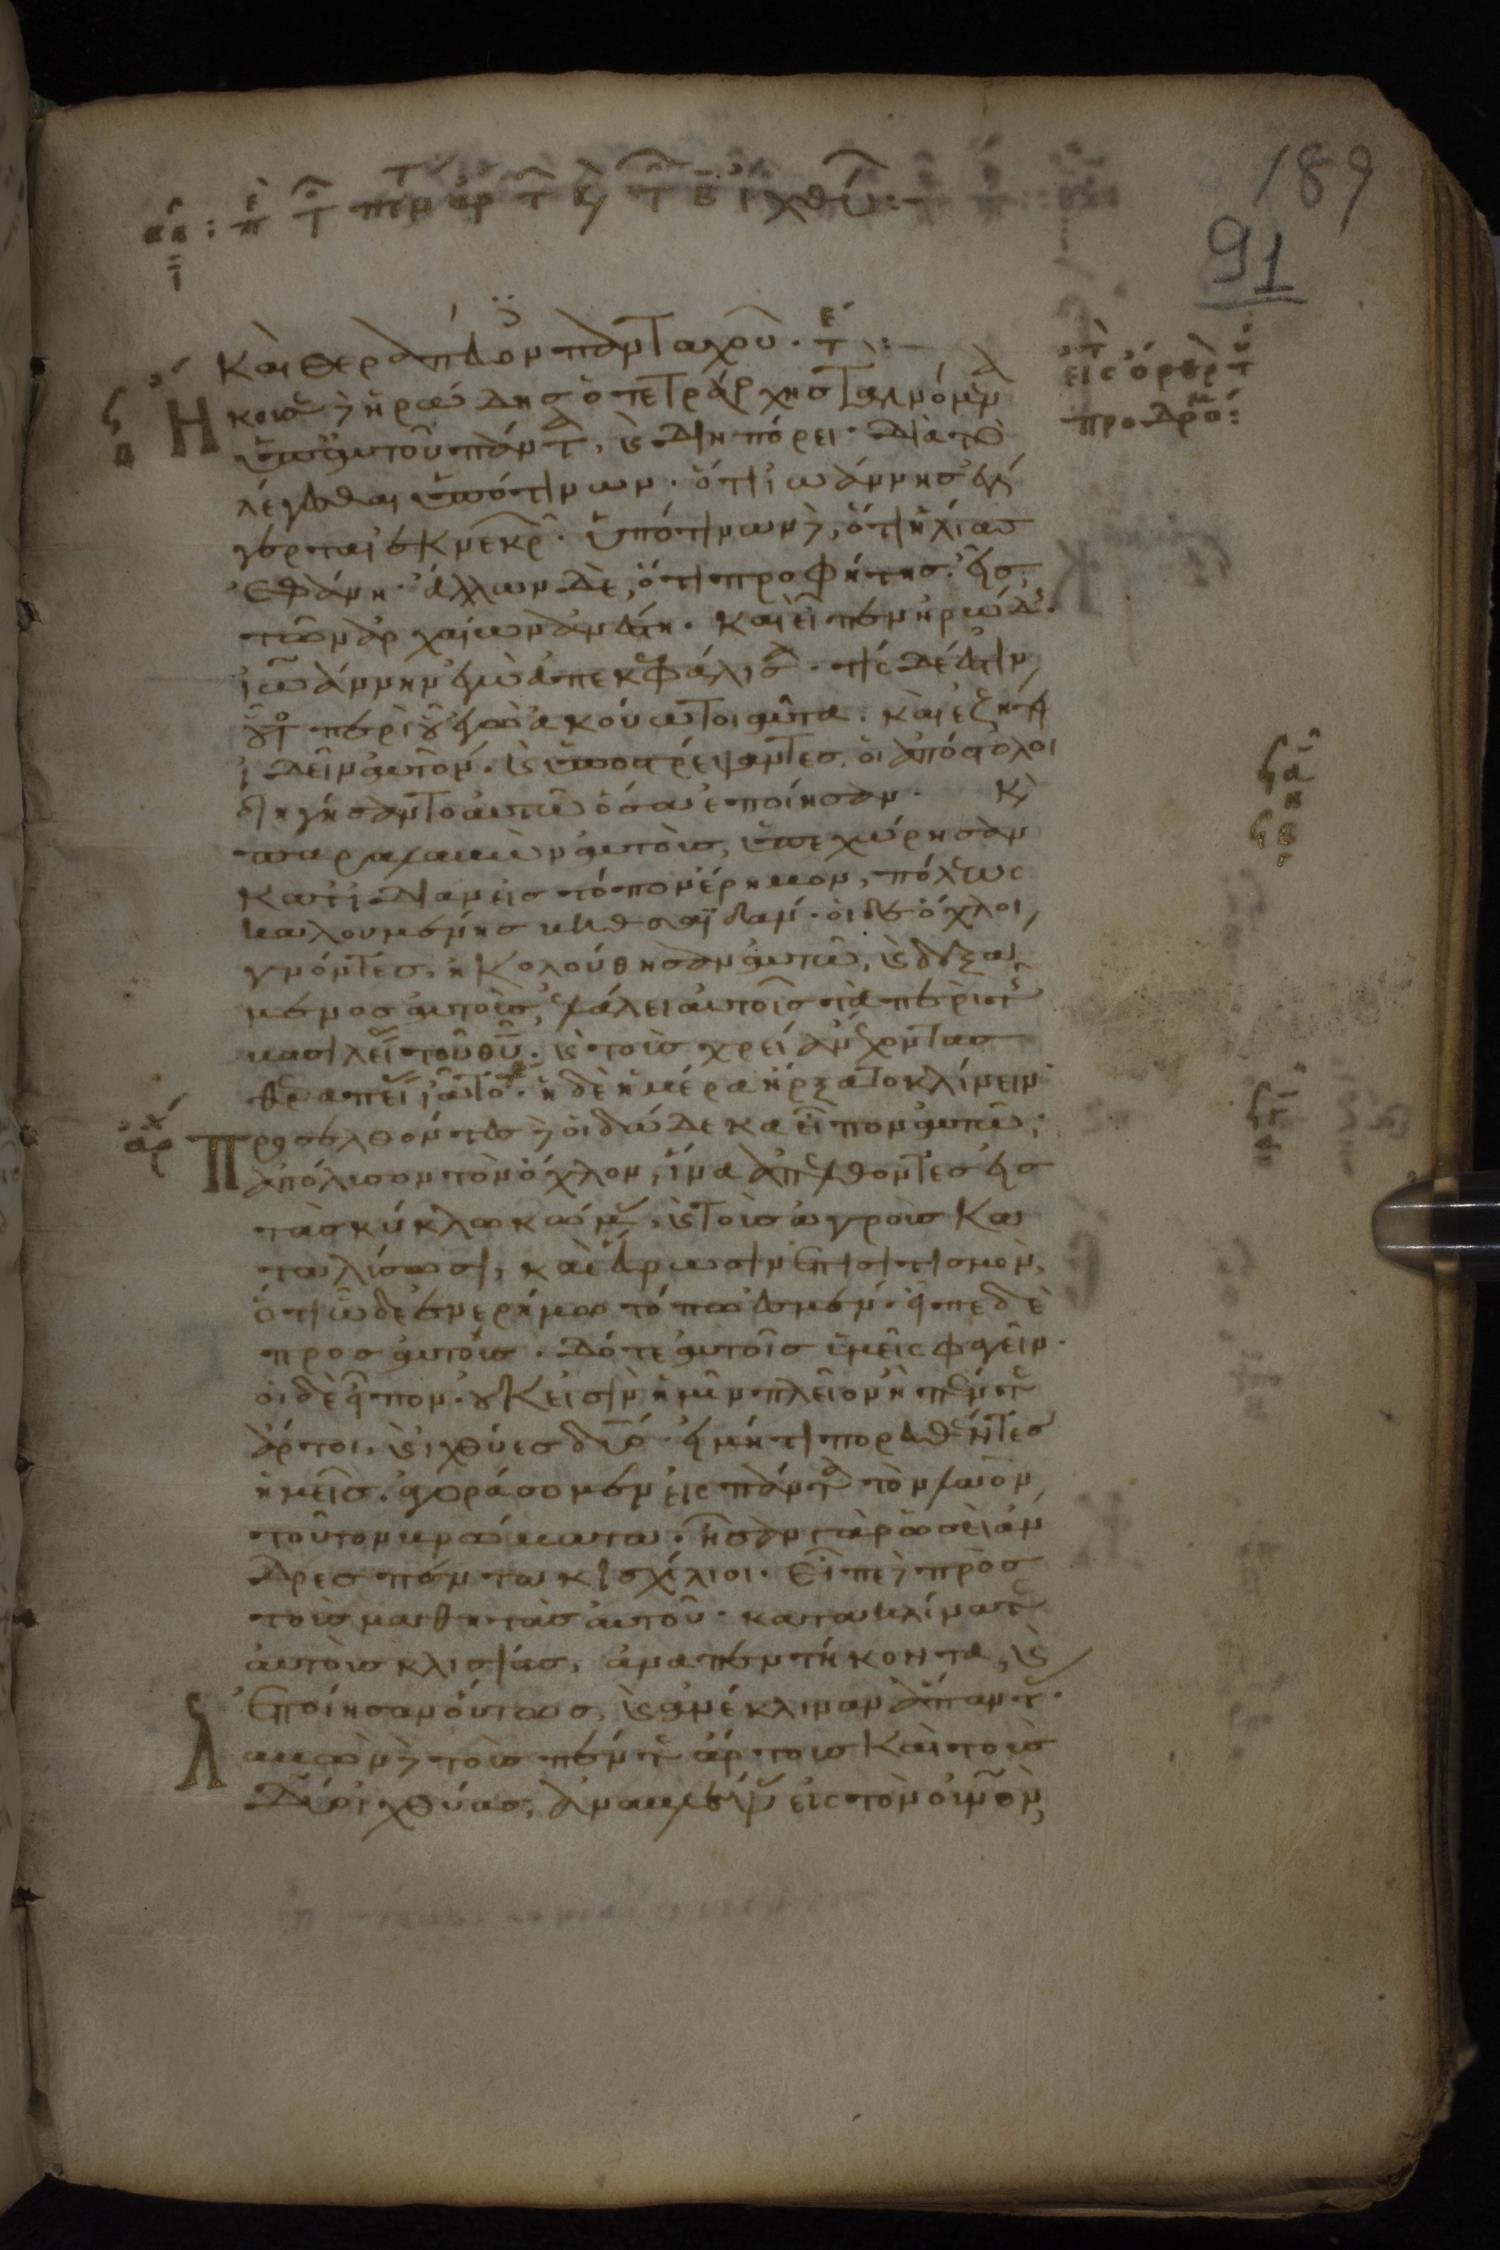 189
91
κη: π τ πεντ αρτ κ τ β ιχθυ:
καὶ θεραπεύον πανταχοῦ. τε:
εἰς ὄρθρ τ
προδρόμ:
Ηκουσε δὲ ἡρώδης ὁ τετράρχης τὰ γινόμεν
ὑπ αὐτοῦ πάντα, καὶ διηπόρει διὰ τὸ
λέγεσθαι ὑπό τινων. ὅτι ἰωάννης ἐγή
γερται ἐκ νεκρ. ὑπό τινων δὲ, ὅτι ἠλίας
ἐφάνη. ἄλλων δὲ, ὅτι προφήτης εἷς
τῶν ἀρχαίων ἀνέστη. καὶ εἶπεν ἡρώδ.
ἰωάννην ἐγὼ ἀπεκεφάλισα. τίς δέ ἐστιν
οὗτος περὶ οὗ ἐγὼ ἀκούω τοιαῦτα. καὶ ἐζήτει
ἰδεῖν αὐτόν. καὶ ὑποστρέψαντες οἱ ἀπόστολοι
διηγήσαντο αὐτῶ ὅσα ἐποίησαν. καὶ
παραλαβὼν αὐτοὺς, ὑπεχώρησεν
κατιδίαν εἰς τόπον ἔρημον, πόλεως
καλουμένης βηθσαϊδάν. οἱ δὲ ὄχλοι
γνόντες, ἠκολούθησαν αὐτῶ, καὶ δεξά
μενος αὐτοὺς, ἐλάλει αὐτοῖς τὰ περὶ τῆς
βασιλείας τοῦ θυ. καὶ τοὺς χρείαν ἔχοντας
θεραπείας ἰᾶτο. ἡ δὲ ἡμέρα ἤρξατο κλίνειν
αρχ
Προσελθόντες δὲ οἱ δώδεκα εἶπον αὐτῶ.
ἀπόλυσον τὸν ὄχλον, ἵνα ἀπελθόντες εἰς
τὰς κύκλω κώμας, καὶ τοὺς ἀγροὺς κα
ταλύσωσι, καὶ εὕρωσιν ἐπισιτισμὸν,
ὅτι ὧδε ἐν ἐρήμω τόπω ἐσμέν. εἶπε δὲ
προς αὐτούς. δότε αὐτοῖς ὑμεῖς φαγεῖν.
οἱ δὲ εἶπον. οὐκ εἰσὶν ἡμῖν πλεῖον ἢ πέντε
ἄρτοι, καὶ ἰχθύες δύο. εἰ μή τι πορευθέντες
ἡμεῖς. ἀγοράσομεν εἰς πάντα τὸν λαὸν
τοῦτον βρώματα. ἦσαν γὰρ ὡσεὶ ἄν
δρες πεντακισχίλιοι. εἶπε δὲ πρὸς
τοὺς μαθητὰς αὐτοῦ. κατακλίνατε
αὐτοὺς κλισίας, ἀνα πεντήκοντα, καὶ
ἐποίησαν οὕτως, καὶ ἀνέκλιναν ἅπαντ.
Λαβὼν δὲ τοὺς πέντε ἄρτους καὶ τοὺς
δύο ἰχθύας, ἀναβλέψας εἰς τὸν οὐνον,